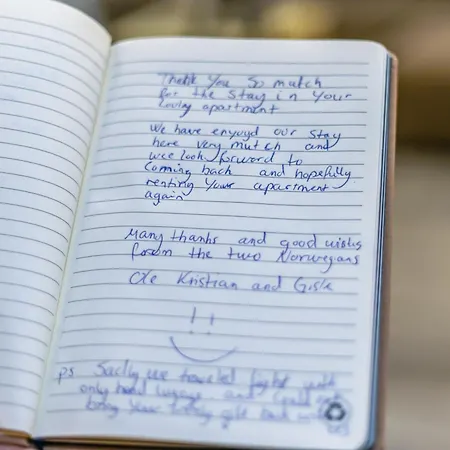 Thank you so match
for the stay in your
loving apartment
We have enyoyd our stay
here very mutch and
wee look forward to
Coming back and hopefully
renting your apartment
again
Many thanks and good wishes
from the two Norwegans
Ole Kristian and Gisle
!!
ps Sadly we traveled light with
only hand lugage and could not
bring your lovely gift back